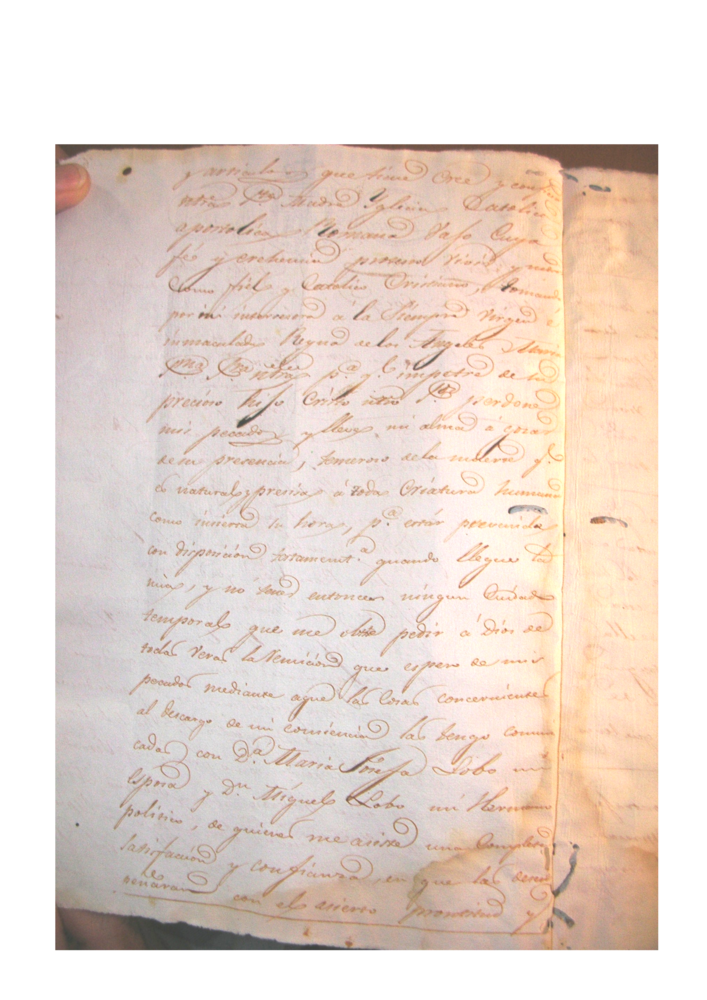 y articulos que tiene Cree y con
ntrâ Sta Madre Yglesia Catolica
apostolica Romana vajo Cuya
feé y crehencia procuro vivir y
como fiel y Catolico Cristiano, tomando
por mi intercesora á la Siempre Virgen é
inmaculada Reyna de los Angeles Maria
Sma Sra ntrâ pa qe impetre de su
precioso Hijo Cristo ntrô Sor perdone
mis pecados y lleve mi alma á gozar
de su presencia; temeroso de la muerte qe
es natural y precisa á toda Criatura humana
como incierta la hora, pa estár prevenido
con disposición testamenta quando llegue la
mia, y nó tener entonces ningun Cuidado
temporal que me obste pedir á Dios de
todas veras la Remición que espero de mis
pecados mediante aque las Cosas concernientes
al descargo de mi conciencia las tengo comuni
cadas con Da Maria Josefa Lobo mi
Esposa y Dn Miguel Lobo mi Hermano
politico, de quienes me asiste una Completa
satisfacción y confianza, en que las desem
peñaran con el acierto prontitud y